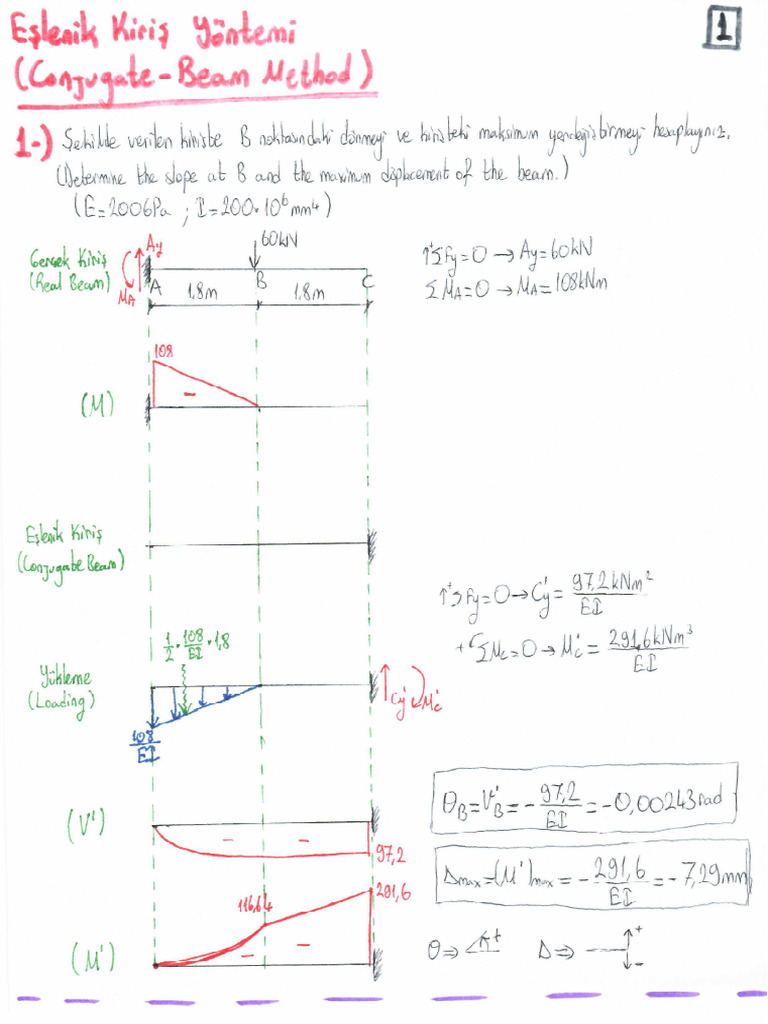 Eşlenik Kiriş Yöntemi
(Conjugate-Beam Method)
1
1-) Şekilde verilen kirişte B noktasındaki dönmeyi ve kirişteki maksimum yerdeğiştirmeyi hesaplayınız.
(Determine the slope at B and the maximum displacement of the beam.)
(E=200GPa ; I=200·10⁶mm⁴)
Gerçek Kiriş
(Real Beam)
Ay
MA
60kN
A
B
C
1,8m
1,8m
↑⁺ΣFy=0 → Ay=60kN
ΣMA=0 → MA=108kNm
108
(M)
-
Eşlenik Kiriş
(Conjugate Beam)
↑⁺ΣFy=0 → Cy'= 97,2kNm²/EI
+ ΣMc=0 → Mc'= 291,6kNm³/EI
1/2 · 108/EI · 1,8
Yükleme
(Loading)
108/EI
Cy'
Mc'
(V')
- -
97,2
θB=V'B=-97,2/EI=-0,00243rad
116,64
291,6
(M')
- -
Δmax=(M')max=-291,6/EI=-7,29mm
θ⇒ +
Δ⇒ + -